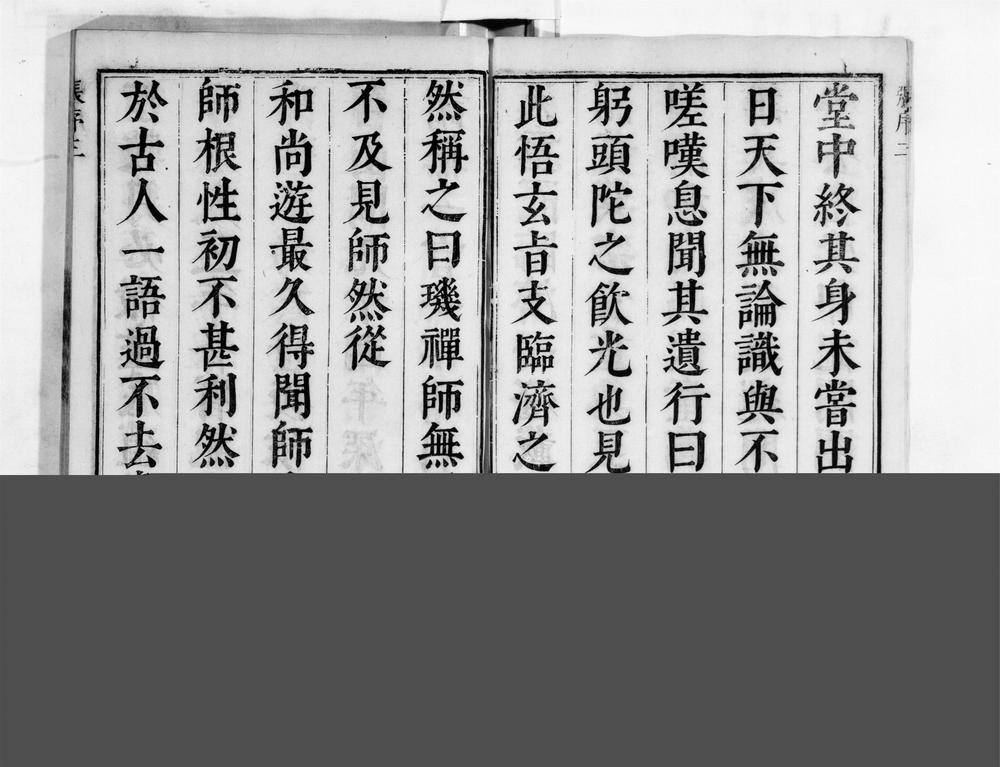 堂中終其身未嘗出
日天下無論識與不
嗟嘆息聞其遺行曰
躬頭陀之飲光也見
此悟玄旨支臨濟之
然稱之曰璣禪師無
不及見師然從
和尚遊最久得聞師
師根性初不甚利然
於古人一語過不去
張序三